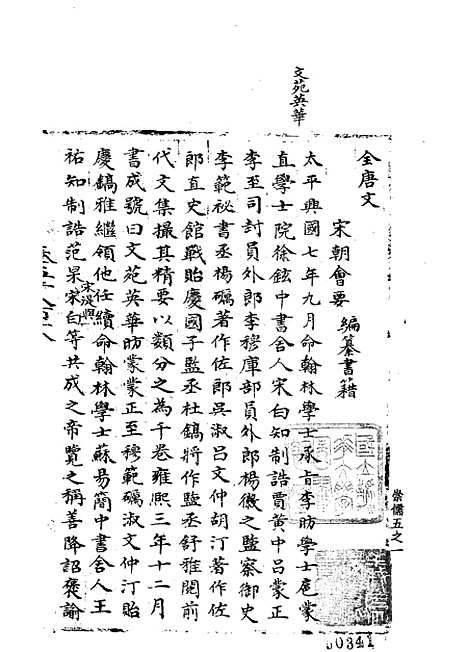 文苑英華
全唐文
宋朝會要
編纂書籍
太平興國七年九月命翰林學士承旨李昉學士扈蒙
直學士院徐鉉中書舍人宋白知制誥賈黃中呂蒙正
李至司封員外郎李穆庫部員外郎楊徽之監察御史
李範祕書丞楊礪著作佐郎吳淑呂文仲胡汀著作佐
郎直史館戰貽慶國子監丞杜鎬將作監丞舒雅閱前
代文集撮其精要以類分之為千卷雍熙三年十二月
書成號曰文苑英華昉蒙蒙正至穆範礪淑文仲汀貽
慶鎬雅繼領他任續命翰林學士蘇易簡中書舍人王
祐知制誥范杲宋白等共成之帝覽之稱善降詔褒諭
崇儒五之一
00341